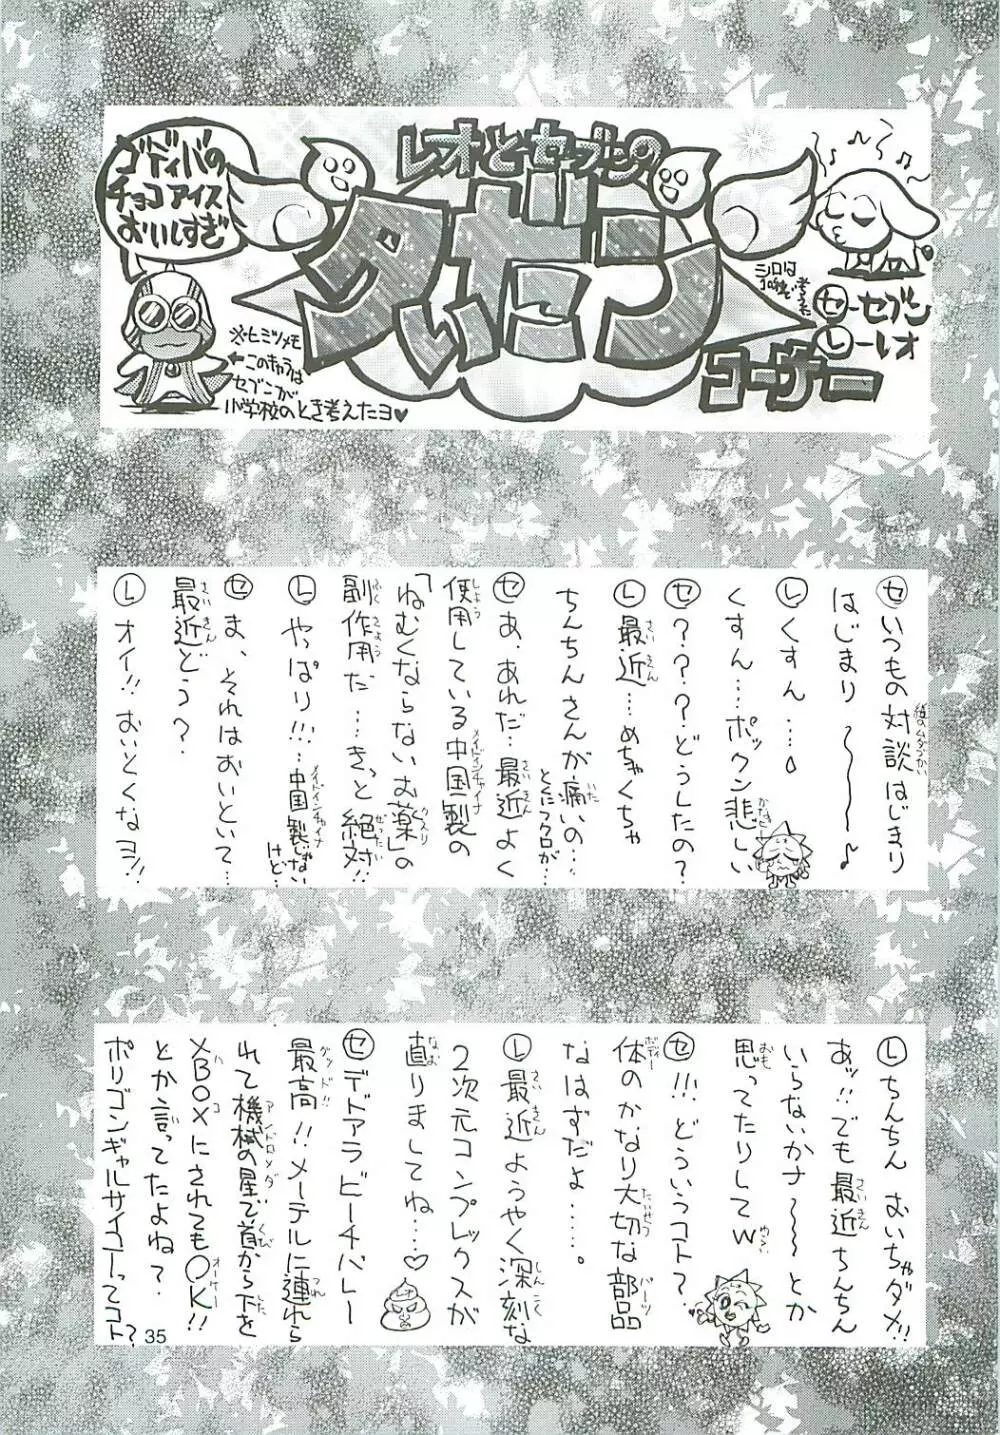 ゴディバの
チョコアイス
おいしすぎ
レオとセブンの
ダビデン
コーナー
※ヒミツメモ
←このキャラは
セブンが
小学校のとき考えたヨ♥
シロは
セ―セブン
レ―レオ
セ いつもの対談はじまり
はじまり〜〜〜♪
レ くすん…
くすん…ポックン悲しい
セ ？？？？どうしたの？
レ 最近…めちゃくちゃ
ちんちんさんが痛いの…
とくにフクロが…
セ あ、あれだ…最近よく
使用している中国製の
「ねむくならないお薬」の
副作用だ…きっと絶対!!
レ やっぱり!!!…中国製じゃない
けど…
セ ま、それはおいといて…
最近どう？
レ オイ!!おいとくなヨ!!
レ ちんちん おいちゃダメ!!
あッ!!でも最近ちんちん
いらないかナ〜〜〜とか
思ってたりしてw
セ !!!どういうコト？
体のかなり大切な部品
なはずだよ……。
レ 最近ようやく深刻な
2次元コンプレックスが
直りましてね…♡
セ デドアラビーチバレー
最高!!メーテルに連れら
れて機械の星で首から下を
XBOXにされても○K!!
とか言ってたよね？
ポリゴンギャルサイコーってコト？
35